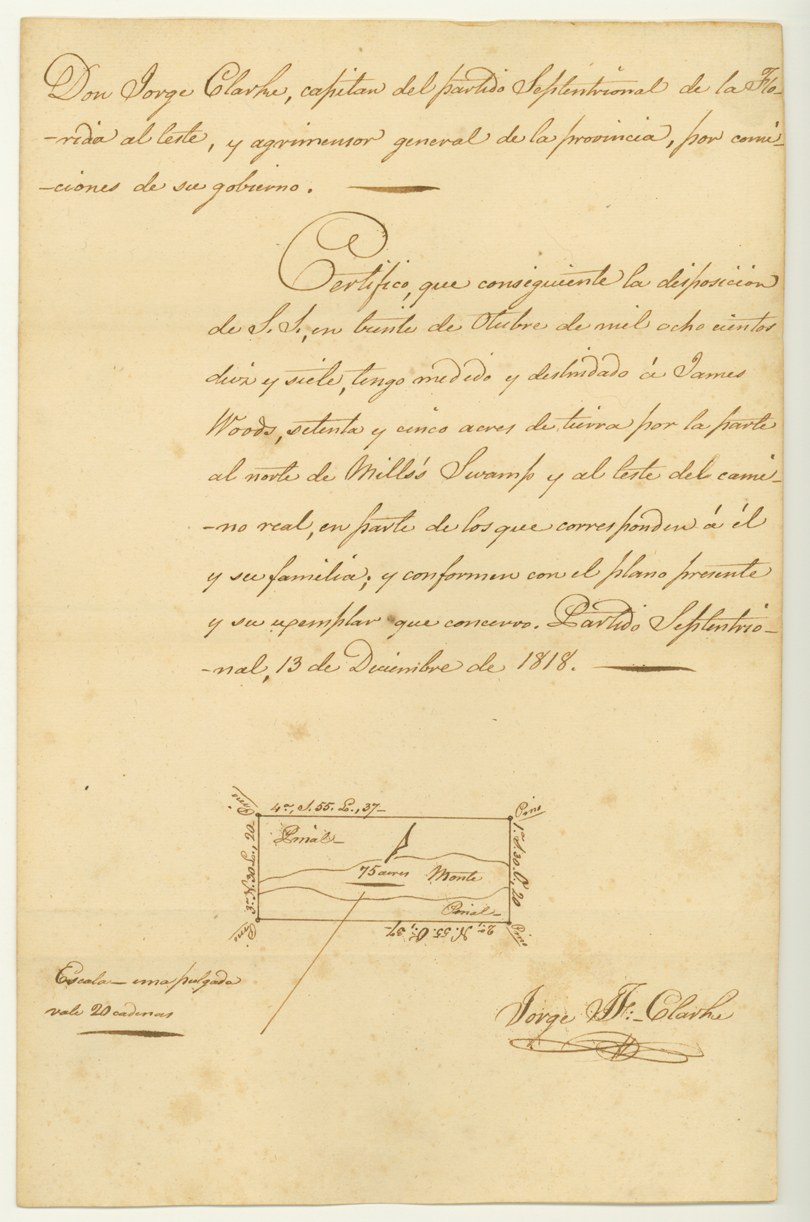 Don Jorge Clarke, capitan del partido Septentrional de la Flo-
-rida al leste, y agrimensor general de la provincia, por comi-
-ciones de su gobierno.
Certifico, que consiguiente la disposicion
de S. S., en beinte de Otubre de mil ocho cientos
diez y siete, tengo medido y deslindado á James
Woods, setenta y cinco acres de tierra por la parte
al norte de Mills's Swamp y al leste del cami-
-no real, en parte de los que corresponden á él
y su familia; y conformen con el plano presente
y su exemplar que concervo. Partido Septentrio-
-nal, 13 de Diciembre de 1818.
Pino
4ª, S. 55. L., 37-
Pino
3ª N. 30 L., 20-
Pinal-
1ª S. 30. O., 20
75 acres Monte
Pinal-
Pino
2ª, N. 55. O., 37-
Pino
Escala- una pulgada
vale 20 cadenas
Jorge J. F. Clarke